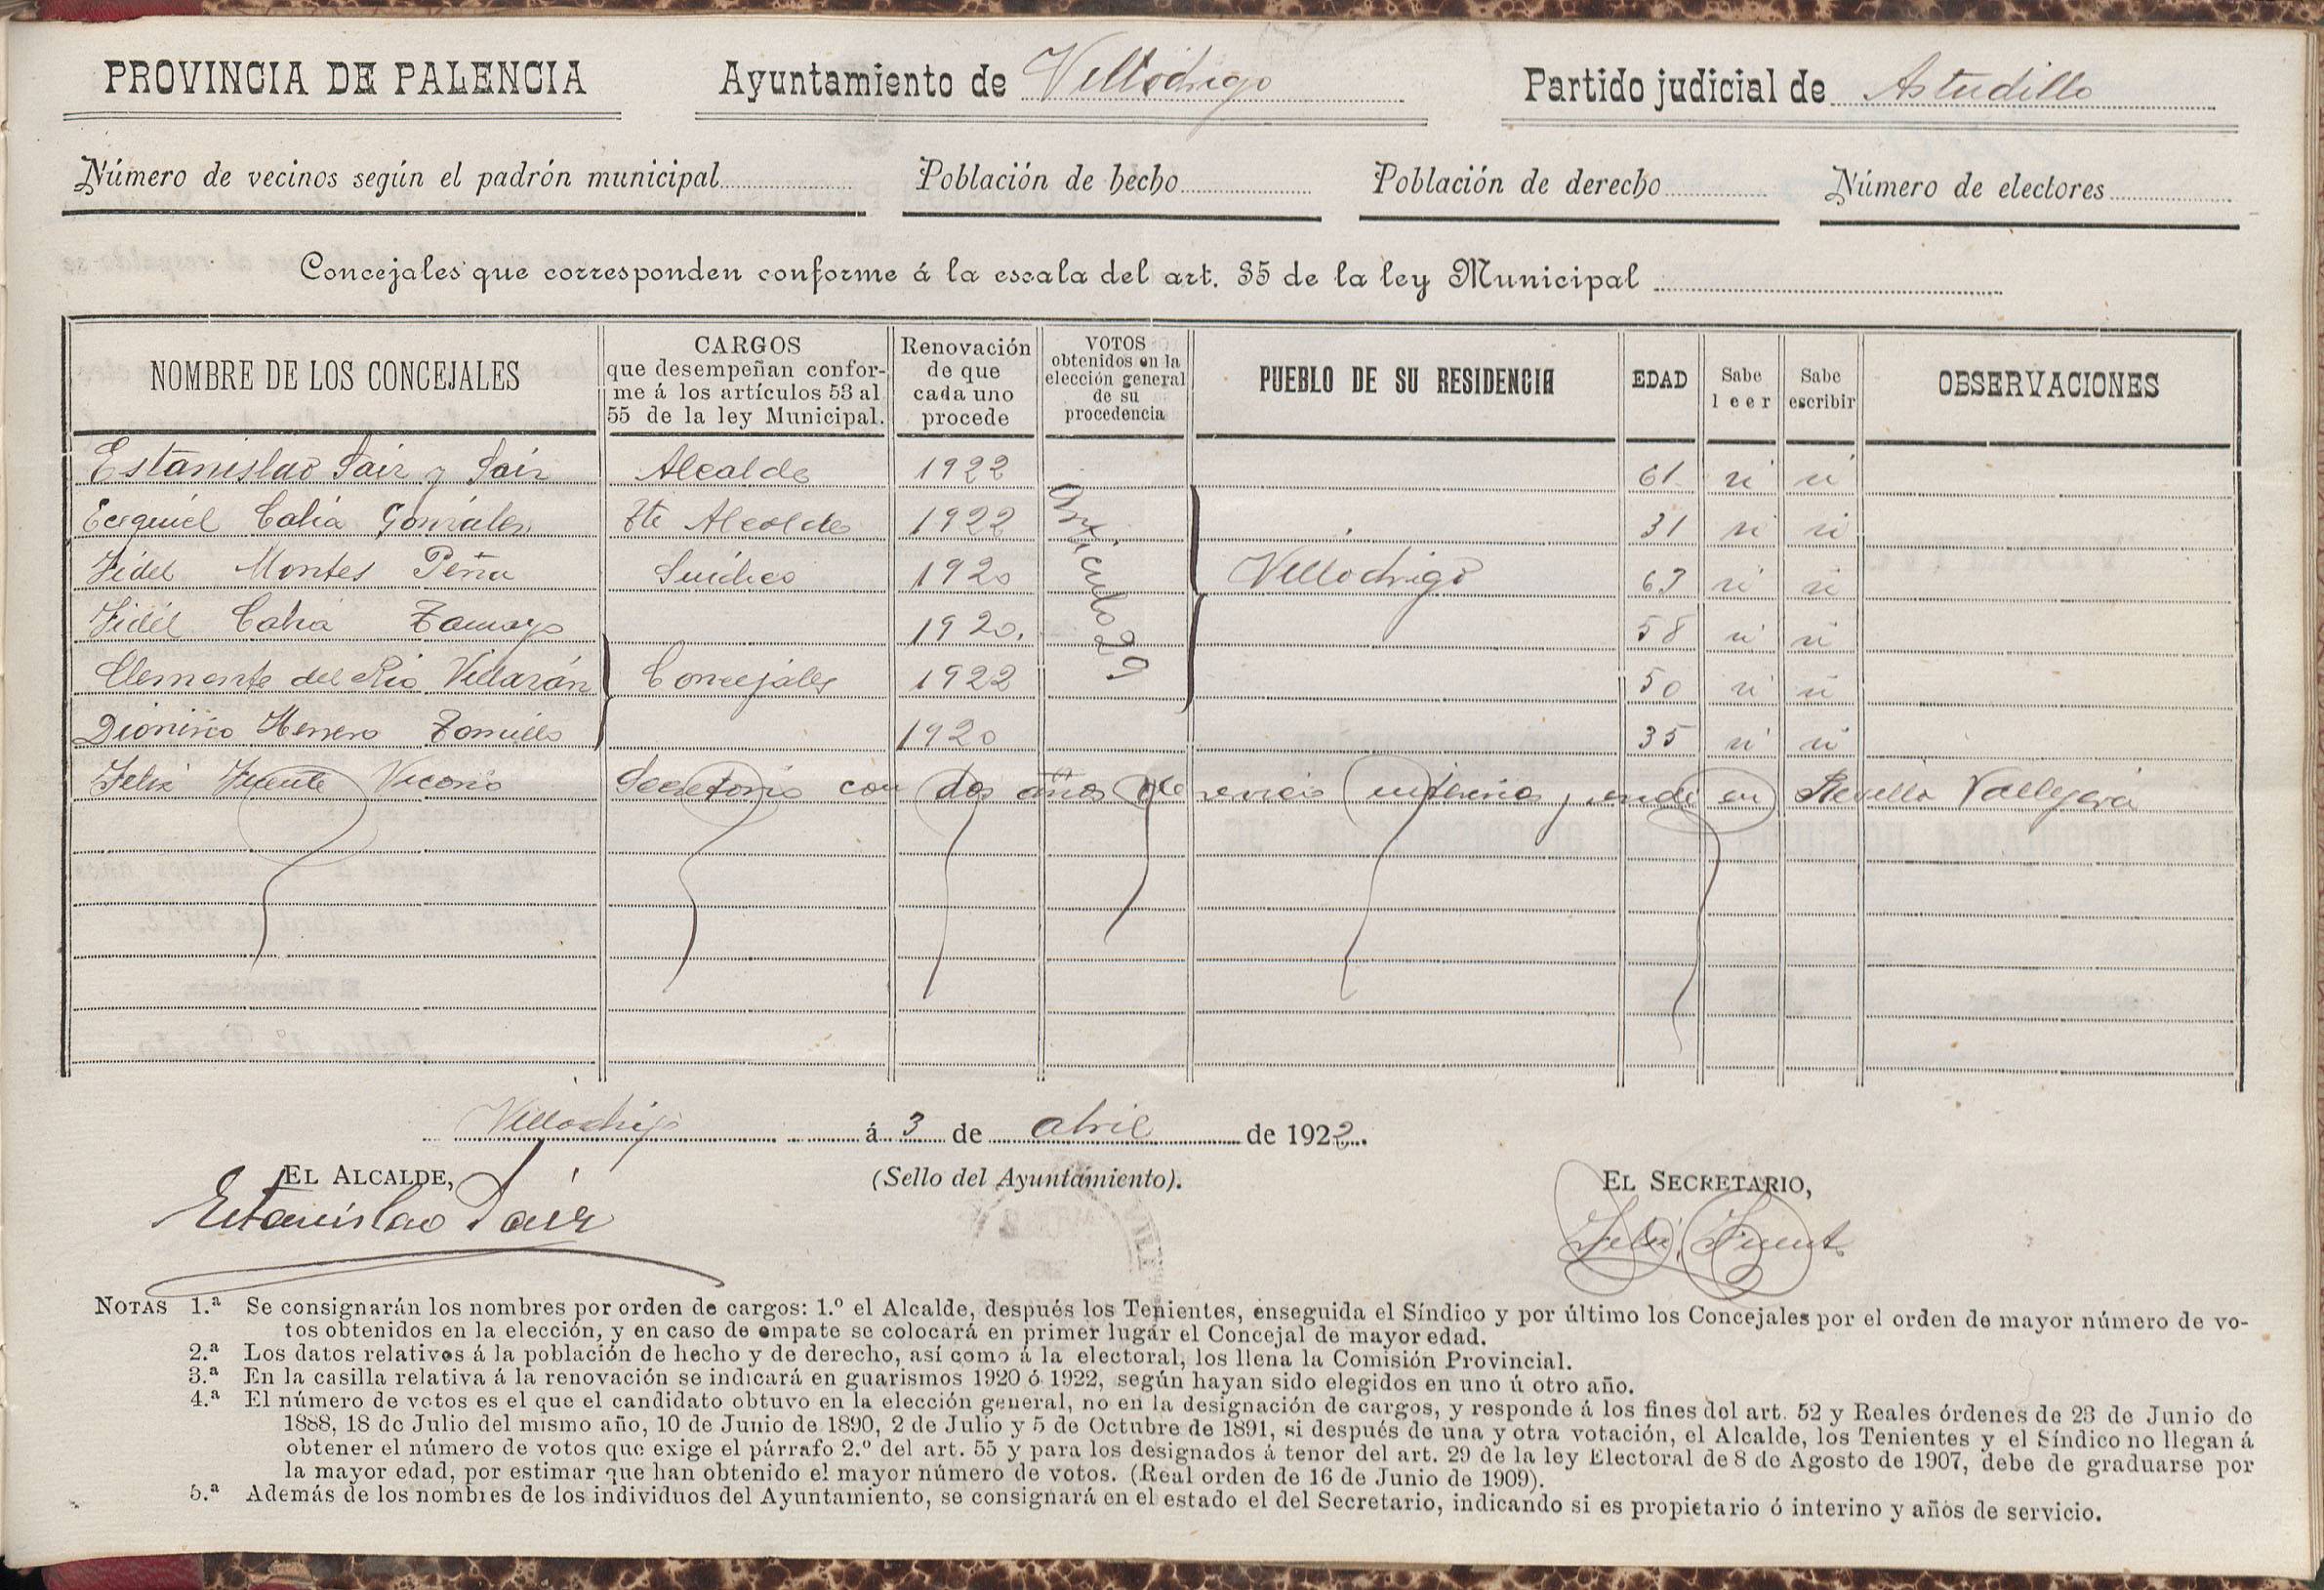 PROVINCIA DE PALENCIA Ayuntamiento de Villodrigo Partido judicial de Astudillo
Número de vecinos según el padrón municipal Población de hecho Población de derecho Número de electores
Concejales que corresponden conforme á la escala del art. 35 de la ley Municipal
NOMBRE DE LOS CONCEJALES
CARGOS
que desempeñan confor-
me á los artículos 53 al
55 de la ley Municipal.
Renovación
de que
cada uno
procede
VOTOS
obtenidos en la
elección general
de su
procedencia
PUEBLO DE SU RESIDENCIA
EDAD
Sabe
leer
Sabe
escribir
OBSERVACIONES
Estanislao Saiz y Saiz Alcalde 1922 61 si si
Ecequiel Calia González Tte Alcalde 1922 31 si si
Fidel Montes Peña Síndico 1920 Villodrigo 63 si si
Fidél Calia Tamayo 1920. 58 si si
Clemente del Rio Villarán Concejales 1922 50 si si
Dionisio Herrero 1920 35 si si
Articulo 29
Felix Fuente Vicario Secretario con dos años de servicio interino y reside en Revilla Vallejera
Villodrigo á 3 de abril de 1922.
EL ALCALDE, (Sello del Ayuntamiento). EL SECRETARIO,
Estanislao Saiz Felix Fuente
NOTAS 1.ª Se consignarán los nombres por orden de cargos: 1.º el Alcalde, después los Tenientes, enseguida el Síndico y por último los Concejales por el orden de mayor número de vo-
tos obtenidos en la elección, y en caso de empate se colocará en primer lugar el Concejal de mayor edad.
2.ª Los datos relativos á la población de hecho y de derecho, así como á la electoral, los llena la Comisión Provincial.
3.ª En la casilla relativa á la renovación se indicará en guarismos 1920 ó 1922, según hayan sido elegidos en uno ú otro año.
4.ª El número de votos es el que el candidato obtuvo en la elección general, no en la designación de cargos, y responde á los fines del art. 52 y Reales órdenes de 23 de Junio de
1888, 18 de Julio del mismo año, 10 de Junio de 1890, 2 de Julio y 5 de Octubre de 1891, si después de una y otra votación, el Alcalde, los Tenientes y el Síndico no llegan á
obtener el número de votos que exige el párrafo 2.º del art. 55 y para los designados á tenor del art. 29 de la ley Electoral de 8 de Agosto de 1907, debe de graduarse por
la mayor edad, por estimar que han obtenido el mayor número de votos. (Real orden de 16 de Junio de 1909).
5.ª Además de los nombres de los individuos del Ayuntamiento, se consignará en el estado el del Secretario, indicando si es propietario ó interino y años de servicio.